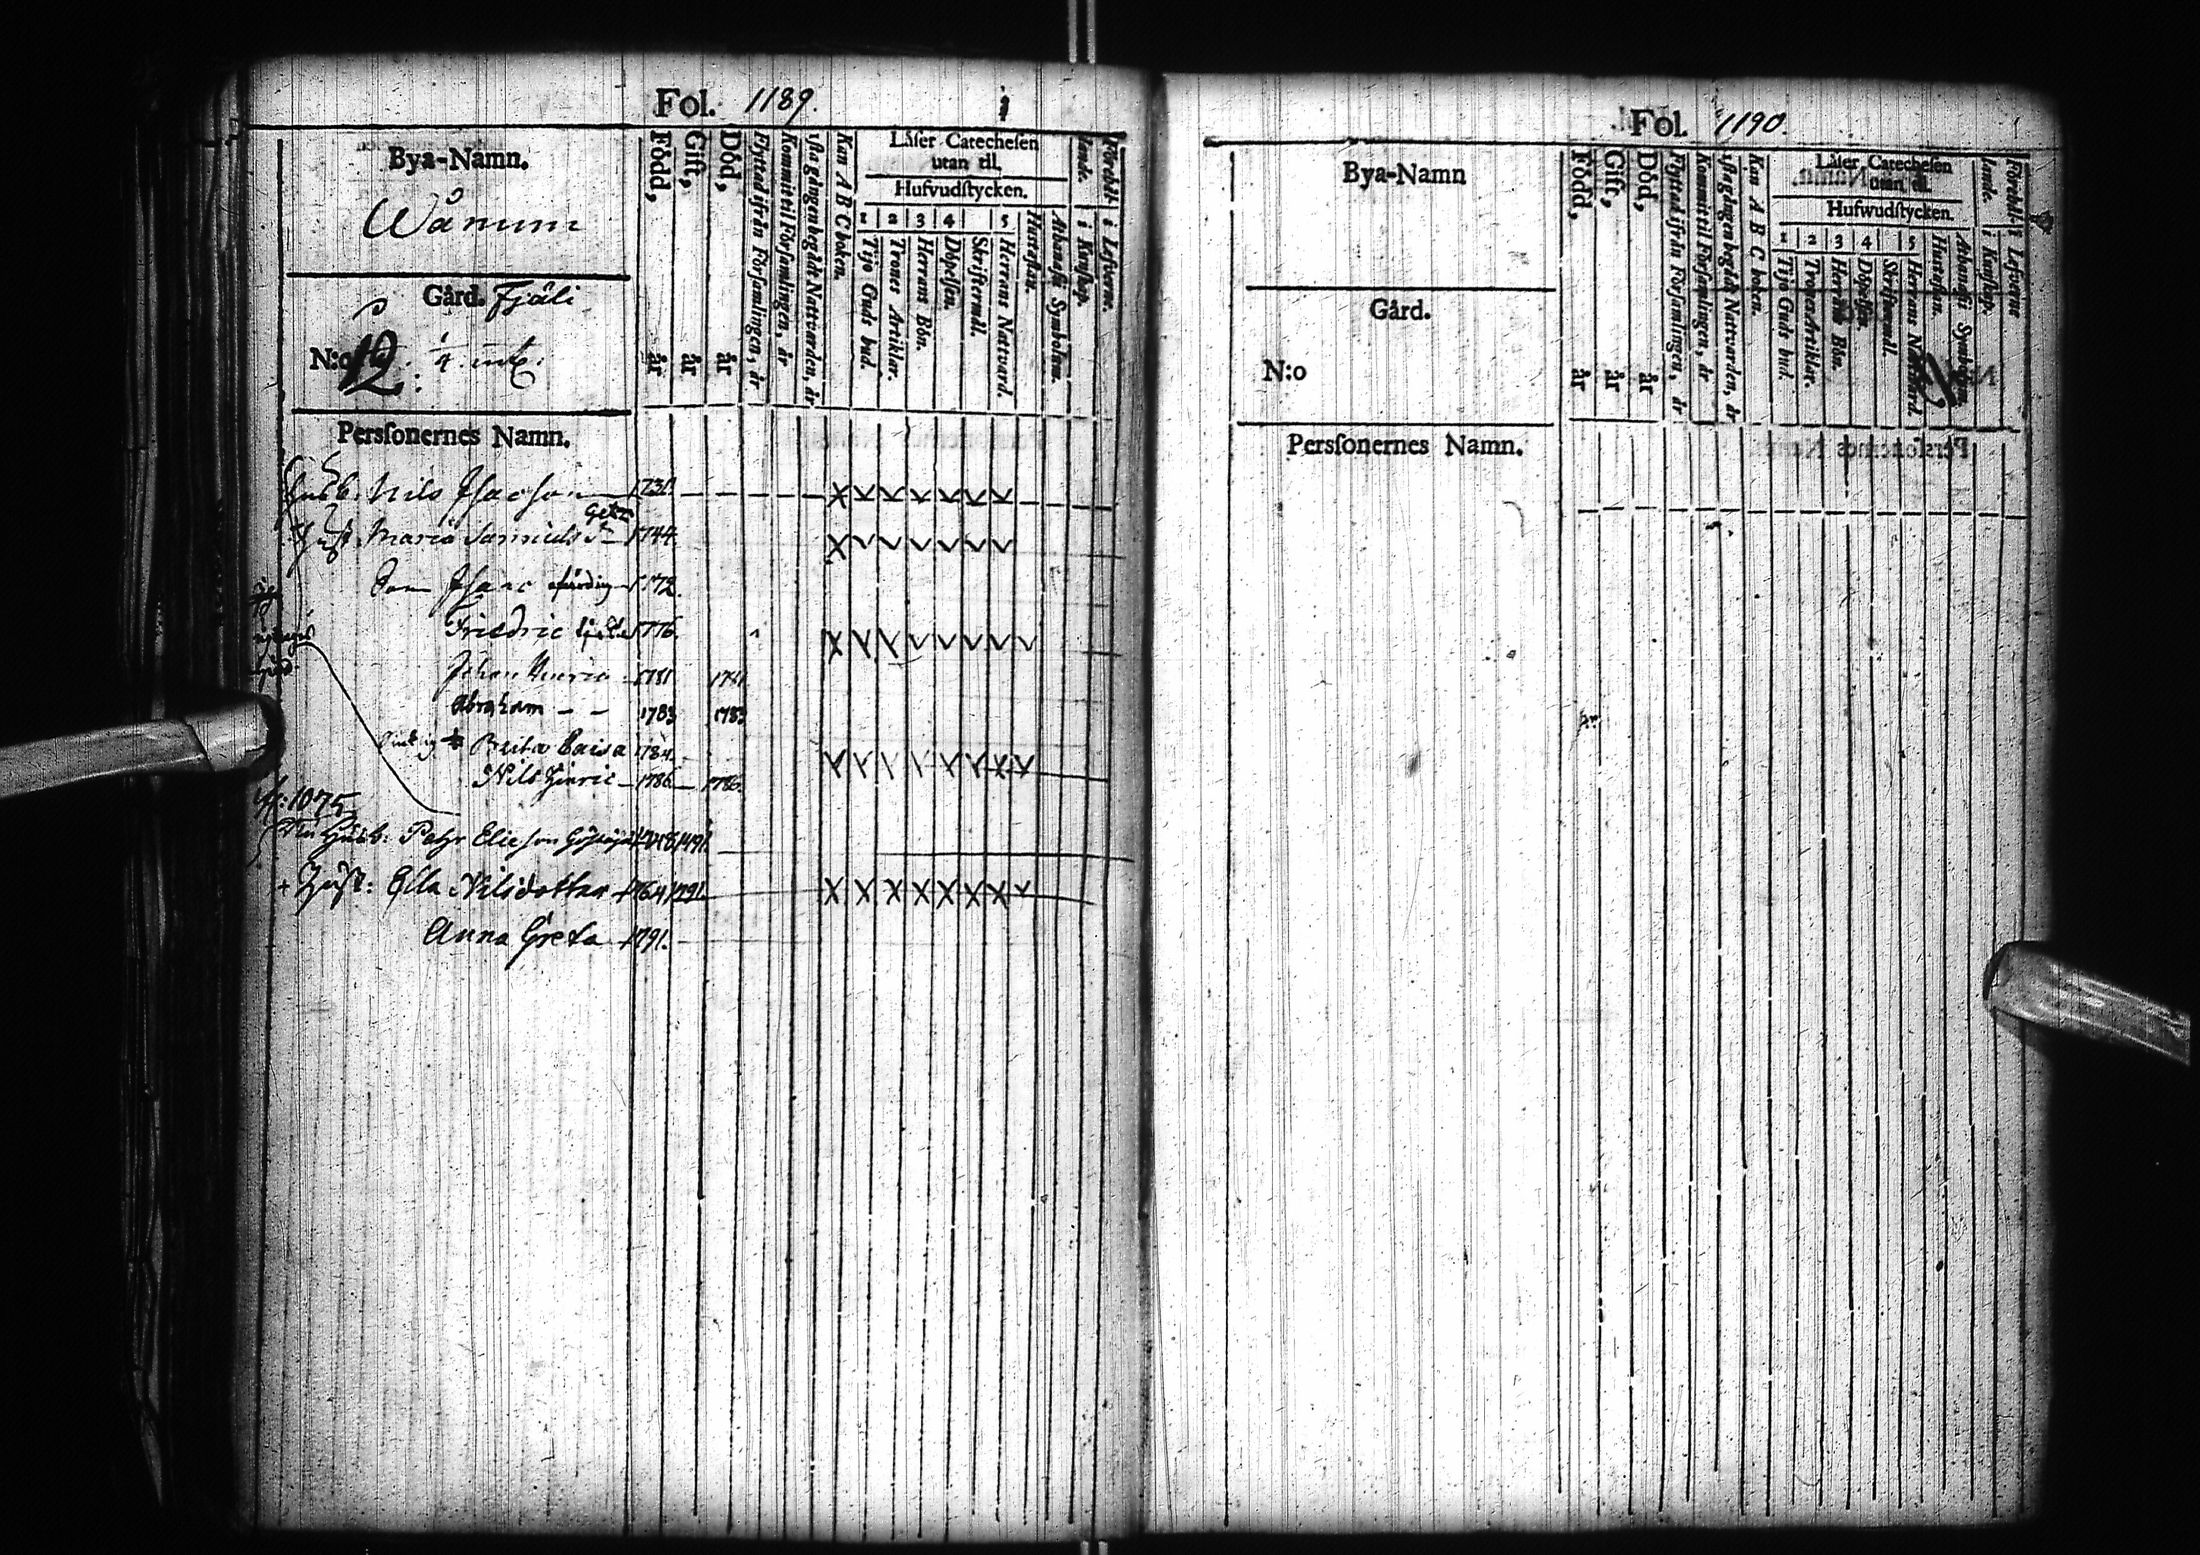 Fol. 1189.
Bya-Namn.
Wånum
Gård. Fjäli
N:o 12. 1/4.
Född, år
Gift, år
Död, år
Flyttad ifrån Församlingen, år
Kommit til Församlingen, år
1sta gången begådt Nattvarden, år
Kan A B C boken.
Läser Catechesen
utan til.
Hufvudstycken.
1 2 3 4 5
Tijo Guds bud.
Trones Artiklar.
Herrans Bön.
Döpelsen.
Skriftermål.
Herrans Nattvard.
Hustaflan.
Athanasii Symbolum.
Förehållande.
i Kunskap.
i Lefverne.
Persſonernes Namn.
Husb. Nils Isacson 173
Hust. Maria Samuels dr 1744.
Son Isaac 1772.
Friedric 1776.
Johan 1781 1781
Abraham - - 1783 1783
Brita Caisa 1784.
Nils Hinric - 1786 - 1786.
Sp: 1075
Husb: Pehr Elieson
+ Hust: Ella Nilsdotter 1764 1791.
Anna Greta 1791.
Fol. 1190.
Bya-Namn
Gård.
N:o
Född, år
Gift, år
Död, år
Flyttad ifrån Församlingen, år
Kommit til Församlingen, år
1sta gången begådt Nattvarden, år
Kan A B C boken.
Läser Catechesen
utan til.
Hufwudstycken.
1 2 3 4 5
Tijo Guds bud.
Trones Artiklar.
Herrans Bön.
Döpelsen.
Skriftermål.
Herrans Nattvard.
Hustaflan.
Athanasii Symbolum.
Förehållande.
i Kunskap.
i Lefverne
Persſonernes Namn.